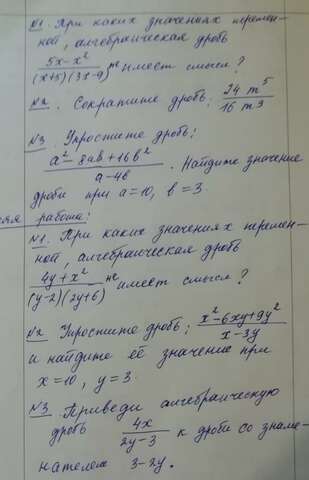 №1. При каких значениях перемен-
ной, алгебраическая дробь
(5x-x²)/((x+5)(3x-9)) не имеет смысл?
№2. Сократите дробь: 24m⁵/16m³
№3. Упростите дробь:
(a²-8ab+16b²)/(a-4b). Найдите значение
дроби при a=10, b=3
яя работа:
№1. При каких значениях перемен-
ной, алгебраическая дробь
(4y+x²)/((y-2)(2y+6)) не имеет смысл?
№2 Упростите дробь; (x²-6xy+9y²)/(x-3y)
и найдите её значение при
x=10, y=3.
№3. Приведи алгебраическую
дробь 4x/(2y-3) к дроби со знаме-
нателем 3-2y.